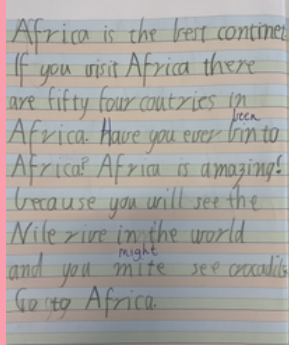 Africa is the best continet
If you visit Africa there
are fifty four coutries in
been
Africa. Have you ever brin to
Africa? Africa is amazing!
because you will see the
Nile rive in the world
might
and you mite see crocadils
Go to Africa.